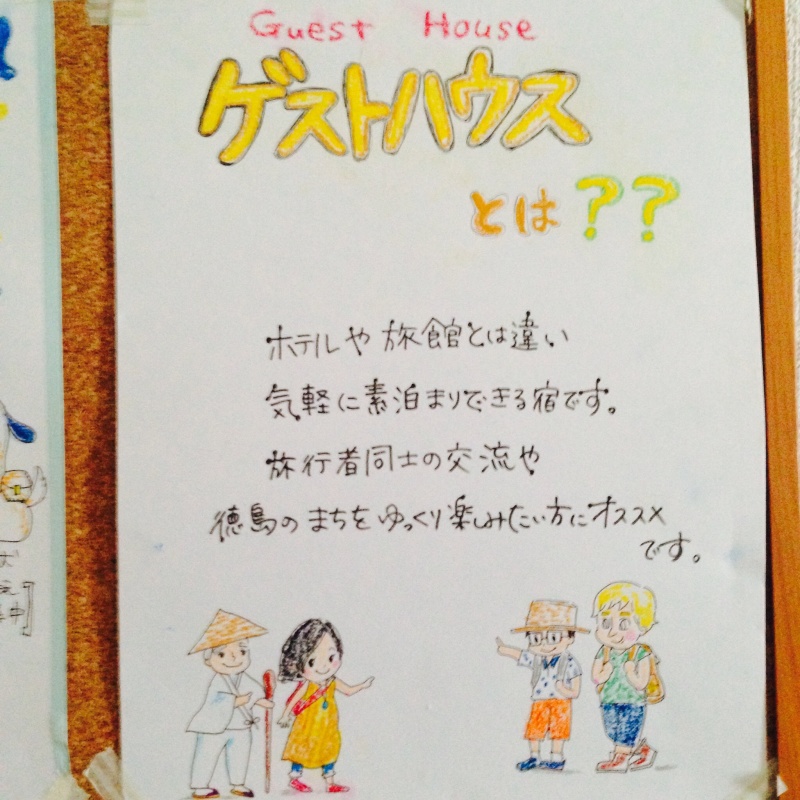 Guest House
ゲストハウス
とは??
ホテルや旅館とは違い
気軽に素泊まりできる宿です。
旅行者同士の交流や
徳島のまちをゆっくり楽しみたい方にオススメ
です。